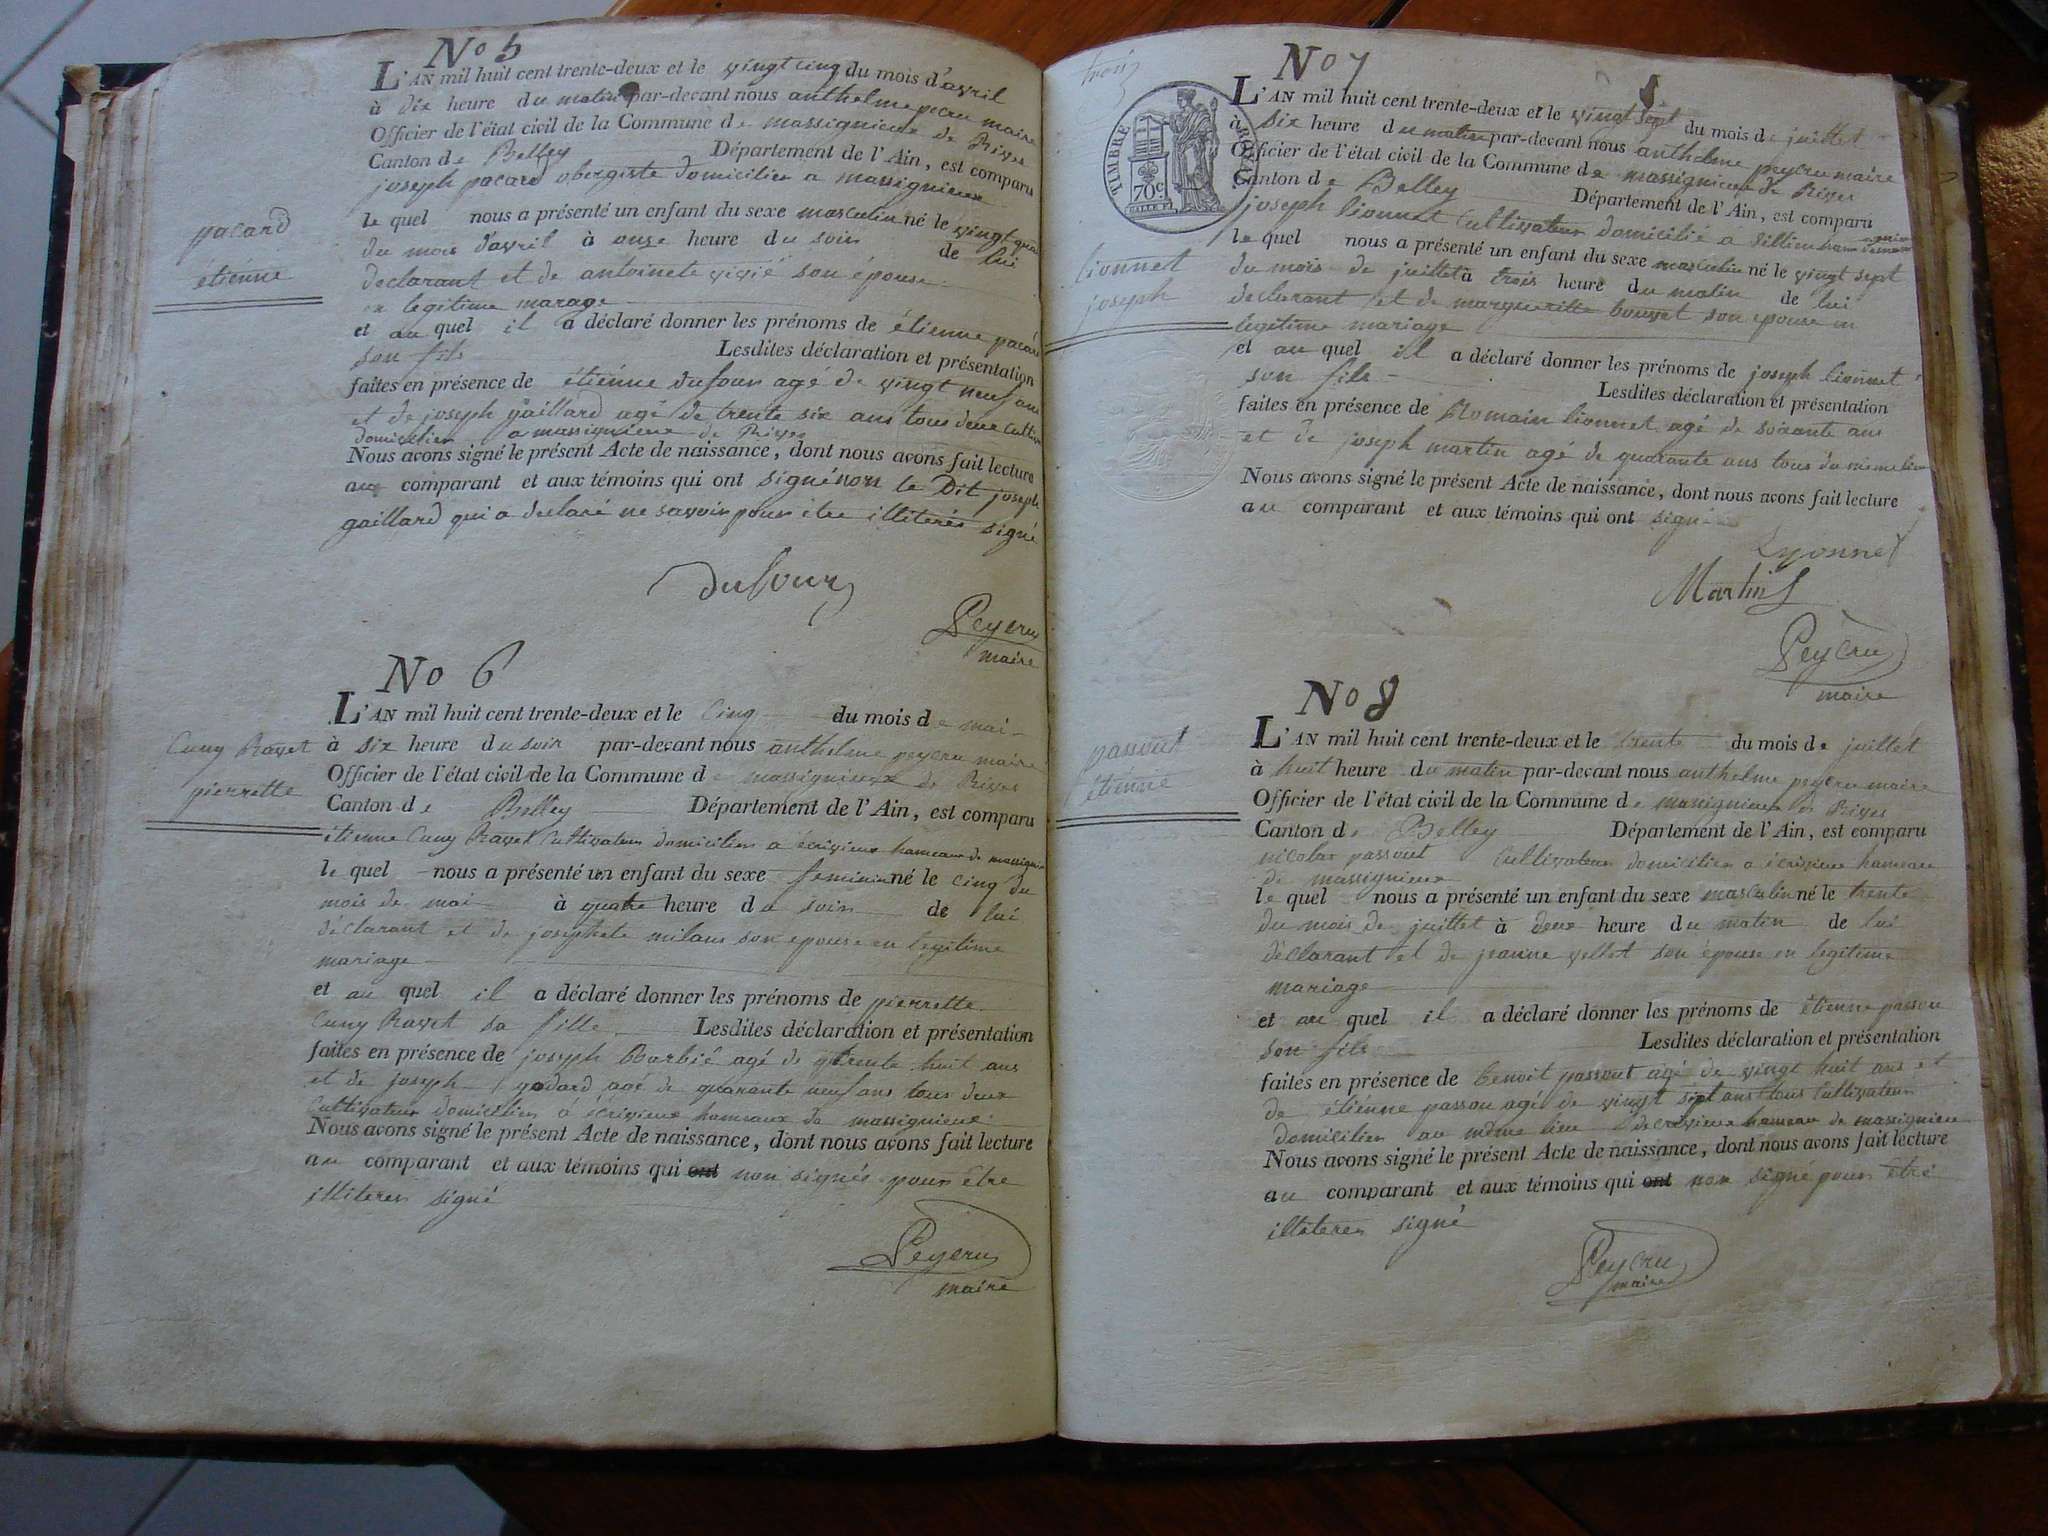 No 5
L'AN mil huit cent trente-deux et le vingt cinq du mois d'avril
à dix heure du matin par-devant nous anthelme peycru maire
Officier de l'état civil de la Commune de massignieux de Rives
Canton de Belley Département de l'Ain, est comparu
joseph pacard obergiste domicilier a massignieux
le quel nous a présenté un enfant du sexe masculin né le vingt quat
du mois d'avril à onze heure du soir de lui
declarant et de antoinete son épouse
en legitime marage
et au quel il a déclaré donner les prénoms de étienne pacard
son fils Lesdites déclaration et présentation
faites en présence de étienne dufour agé de vingt neuf ans
et de joseph gaillard agé de trente six ans tous deux cultiv
domicilier a massignieux de Rives
Nous avons signé le présent Acte de naissance, dont nous avons fait lecture
au comparant et aux témoins qui ont signé non le Dit joseph
gaillard qui a declaré ne savoir pour être illiterés signé
pacard
étienne
Dufour
Peycru
maire
No 6
L'AN mil huit cent trente-deux et le Cinq du mois de mai
à six heure du soir par-devant nous anthelme peycru maire
Officier de l'état civil de la Commune de massignieux de Rives
Canton de Belley Département de l'Ain, est comparu
étienne Cuny Ravet Cultivateur domicilier a écrivieux hameau de massignieu
le quel nous a présenté un enfant du sexe feminin né le cinq du
mois de mai à quatre heure du soir de lui
déclarant et de josephete milans son epouse en legitime
mariage
et au quel il a déclaré donner les prénoms de pierrette
Cuny Ravet sa fille Lesdites déclaration et présentation
faites en présence de joseph Barbié agé de trente huit ans
et de joseph godard agé de quarante neuf ans tous deux
Cultivateur domicilier à écrivieux hameaux de massignieux
Nous avons signé le présent Acte de naissance, dont nous avons fait lecture
au comparant et aux témoins qui ont non signés pour être
illiteres signé
Cuny Ravet
pierrette
Peycru
maire
trois
TIMBRE ROYAL
70c
No 7
L'AN mil huit cent trente-deux et le vingt sept du mois de juillet
à six heure du matin par-devant nous anthelme peycru maire
Officier de l'état civil de la Commune de massignieux de Rives
Canton de Belley Département de l'Ain, est comparu
joseph lionnet Cultivateur domicilié a
le quel nous a présenté un enfant du sexe masculin né le vingt sept
du mois de juillet à trois heure du matin de lui
declarant et de margueritte bouvet son epouse en
legitime mariage
et au quel il a déclaré donner les prénoms de joseph lionnet
son fils Lesdites déclaration et présentation
faites en présence de Romain lionnet agé de soixante ans
et de joseph martin agé de quarante ans tous du même lieu
Nous avons signé le présent Acte de naissance, dont nous avons fait lecture
au comparant et aux témoins qui ont signé
lionnet
joseph
Lyonnet
Martin
Peycru
maire
No 8
L'AN mil huit cent trente-deux et le trente du mois de juillet
à huit heure du matin par-devant nous anthelme peycru maire
Officier de l'état civil de la Commune de massignieux de Rives
Canton de Belley Département de l'Ain, est comparu
nicolas passout Cultivateur domicilier a écrivieux hameau
de massignieux
le quel nous a présenté un enfant du sexe masculin né le trente
du mois de juillet à deux heure du matin de lui
déclarant et de jeanne vellet son épouse en legitime
mariage
et au quel il a déclaré donner les prénoms de étienne passou
son fils Lesdites déclaration et présentation
faites en présence de benoit passout agé de vingt huit ans et
de étiénne passou agé de vingt sipt ans tous Cultivateur
domicilier au même lieu decrivieux hameau de massignieu
Nous avons signé le présent Acte de naissance, dont nous avons fait lecture
au comparant et aux témoins qui ont non signé pour être
illiteres signé
passout
étienne
Peycru
maire